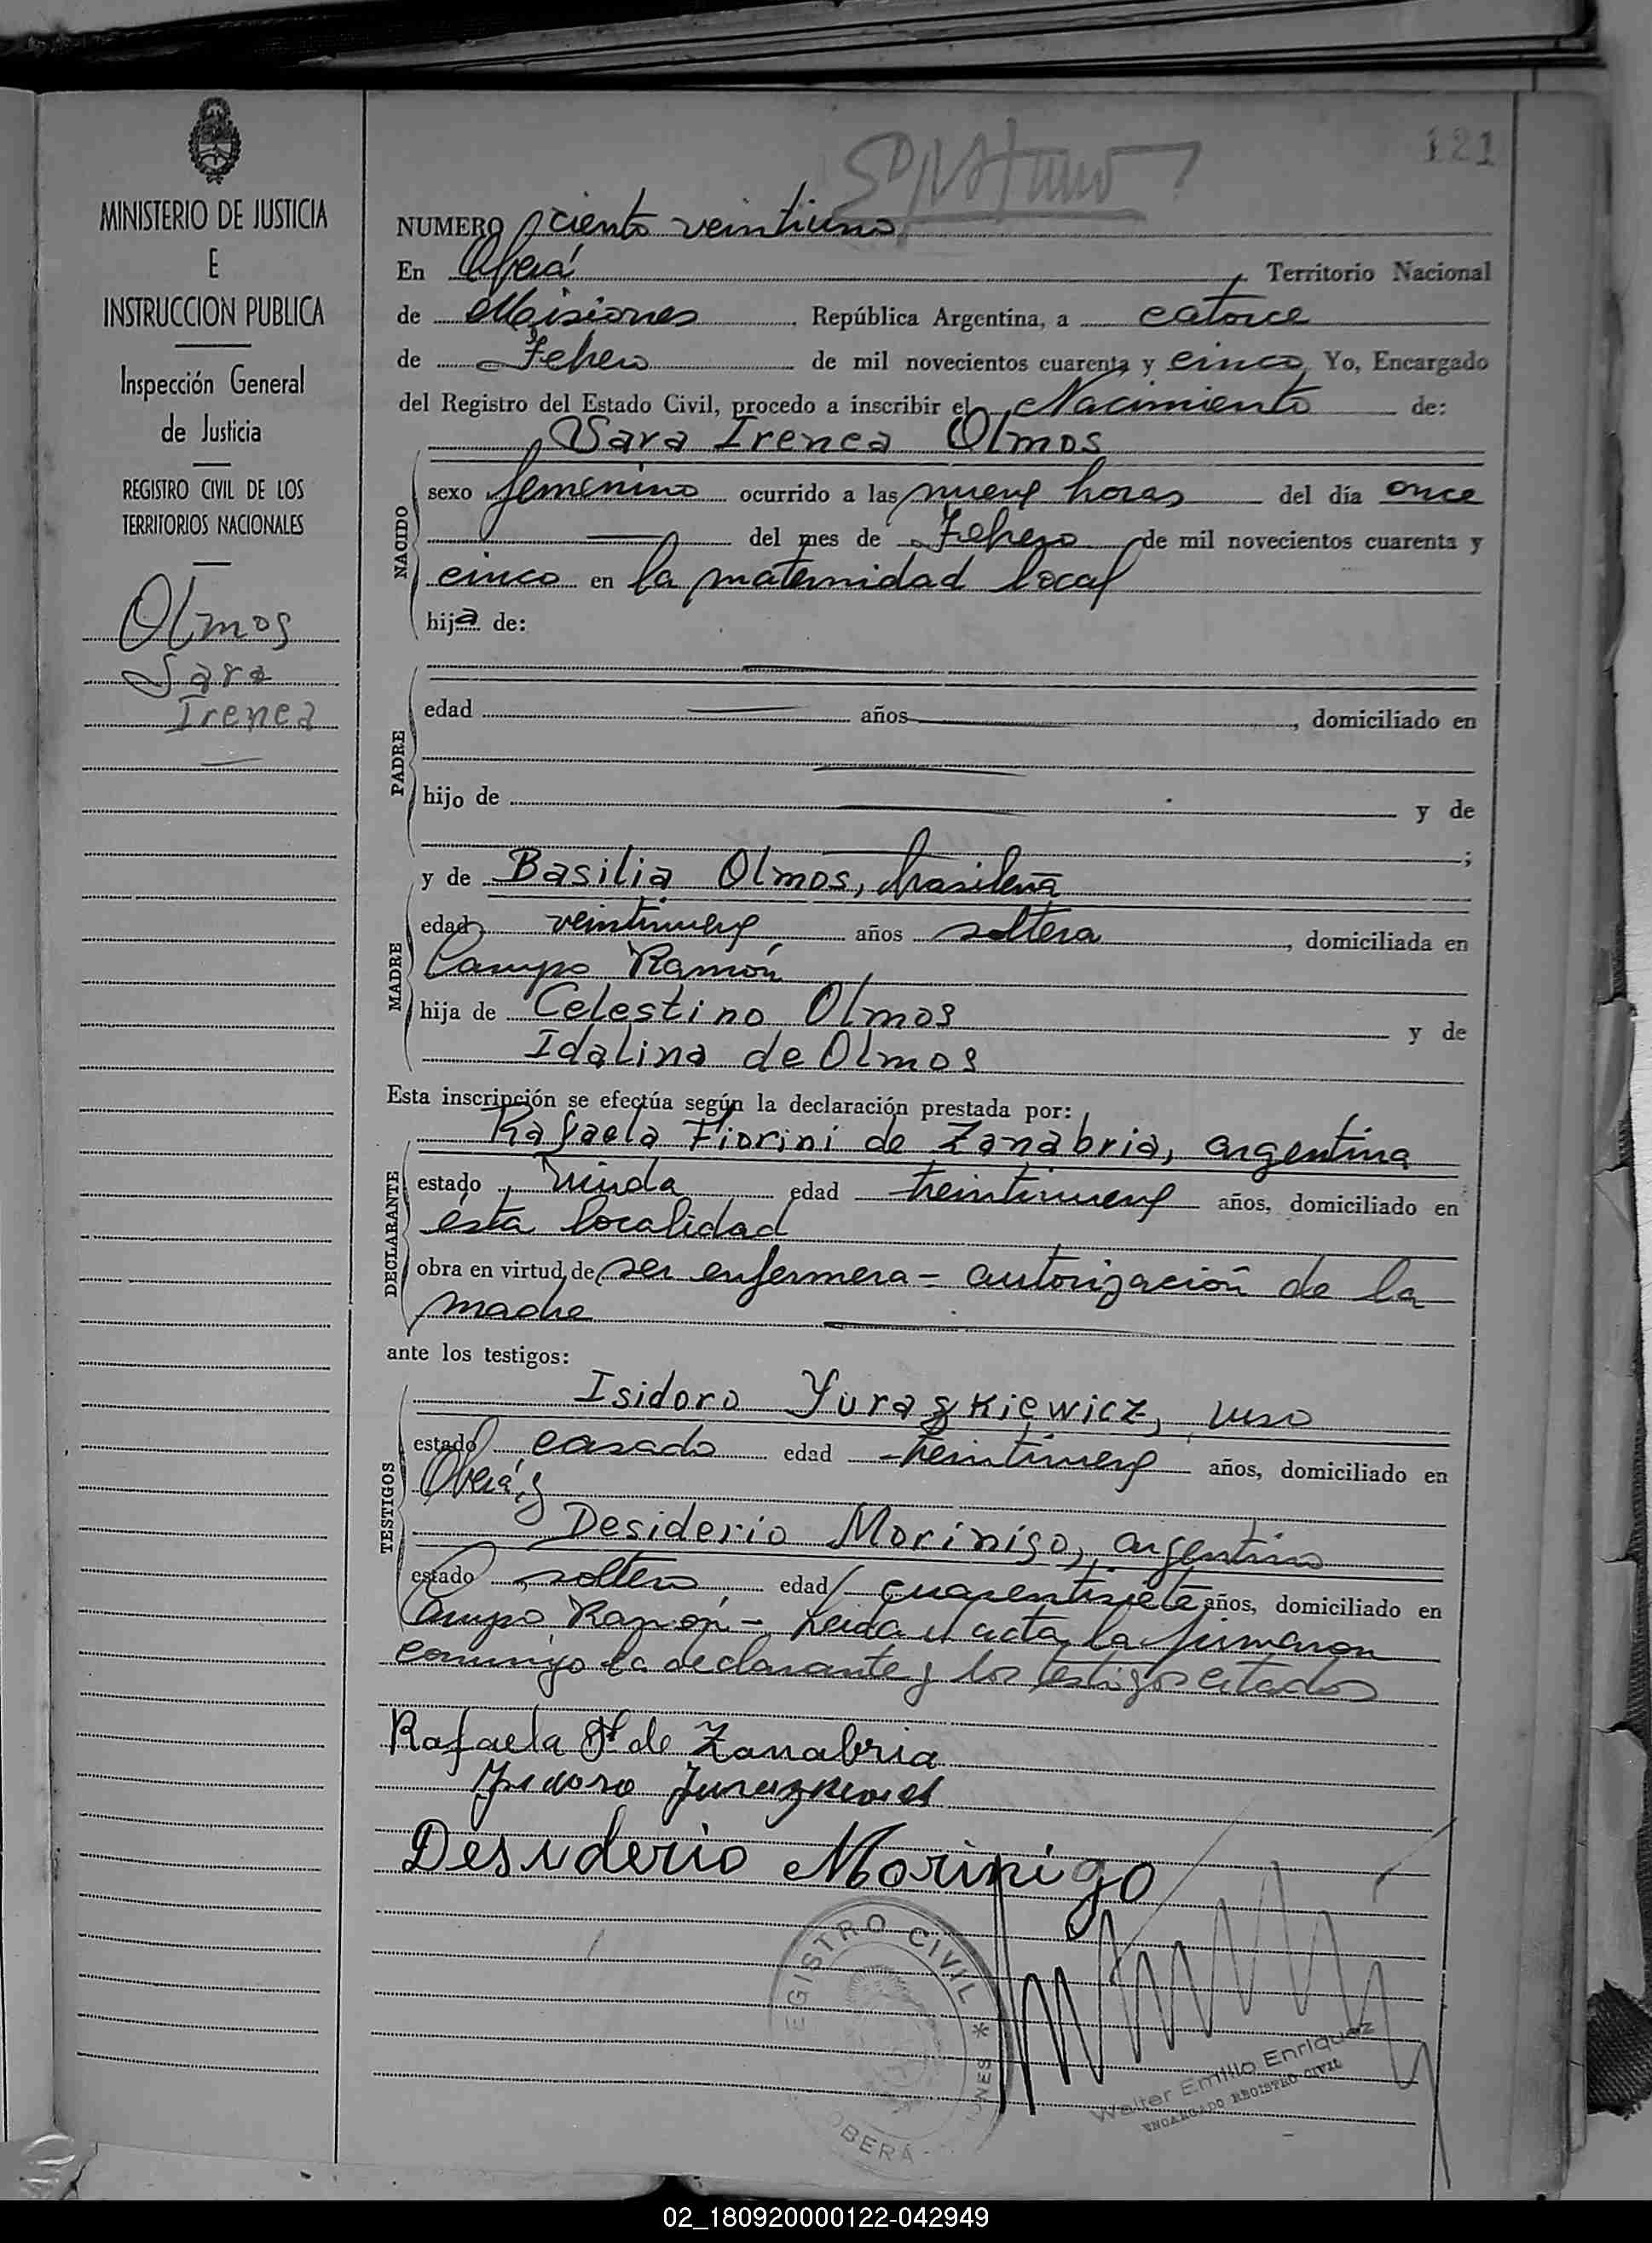 121
MINISTERIO DE JUSTICIA
E
INSTRUCCION PUBLICA
Inspección General
de Justicia
REGISTRO CIVIL DE LOS
TERRITORIOS NACIONALES
Olmos
Sara
Irenea
NUMERO ciento veintiuno
En Oberá, Territorio Nacional
de Misiones, República Argentina, a catorce
de Febrero de mil novecientos cuarenta y cinco, Yo, Encargado
del Registro del Estado Civil, procedo a inscribir el Nacimiento de:
Sara Irenea Olmos
NACIDO
sexo femenino ocurrido a las nueve horas del día once
del mes de Febrero de mil novecientos cuarenta y
cinco en la maternidad local
hija de:
PADRE
edad años, domiciliado en
hijo de y de
;
MADRE
y de Basilia Olmos, brasileña
edad veintinueve años soltera, domiciliada en
Campo Ramón
hija de Celestino Olmos y de
Idalina de Olmos
Esta inscripción se efectúa según la declaración prestada por:
DECLARANTE
Rafaela Fiorini de Zanabria, argentina
estado viuda edad treintinueve años, domiciliado en
ésta localidad
obra en virtud de ser enfermera - autorización de la
madre
ante los testigos:
TESTIGOS
Isidoro Yuraszkiewicz, ruso
estado casado edad treintinueve años, domiciliado en
Oberá, y
Desiderio Morinigo, argentino
estado soltero edad cuarentisiete años, domiciliado en
Campo Ramón - Leida el acta, la firmaron
conmigo la declarante y los testigos citados
Rafaela F. de Zanabria
Isidoro
Desiderio Morinigo
REGISTRO CIVIL *
OBERÁ
Walter Emilio Enriquez
ENCARGADO REGISTRO CIVIL
02_180920000122-042949